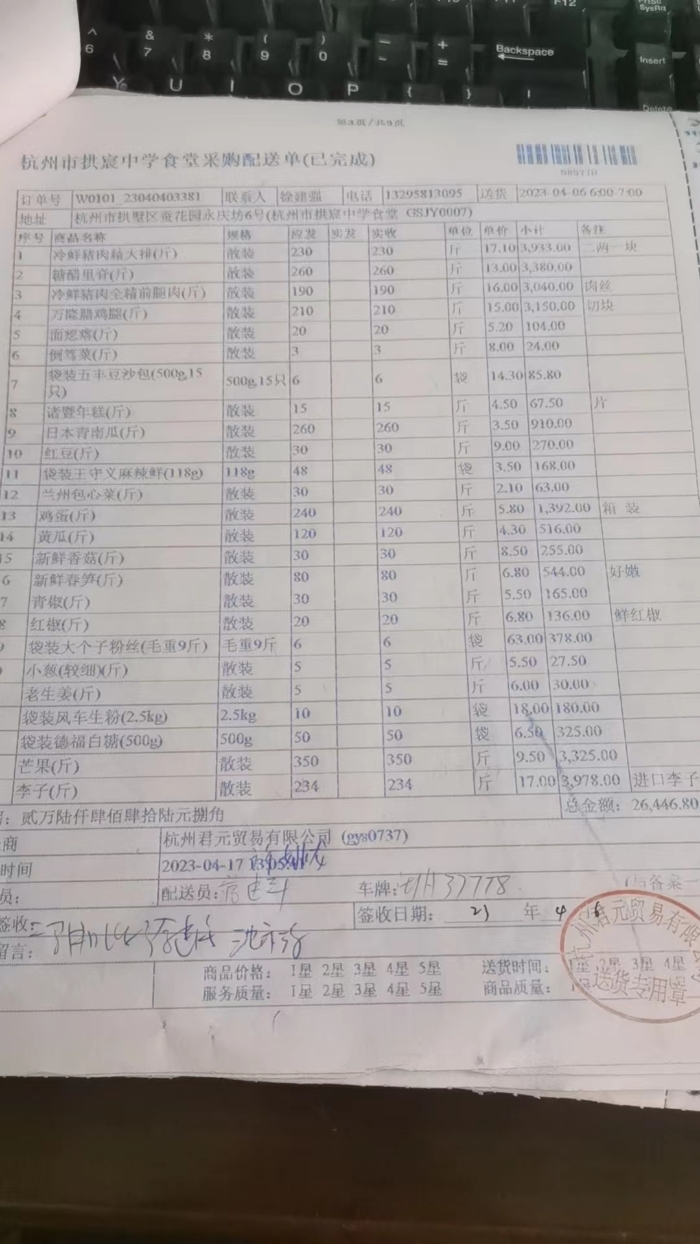 ^ 6 & 7 * 8 ( 9 ) 0 _ - + = Backspace
F12
Insert
Delete
Y U I O P { [ } ]
第3页/共9页
杭州市拱宸中学食堂采购配送单(已完成)
订单号 W0101_23040403381 联系人 徐建强 电话 13295813095 送货 2023-04-06 6:00-7:00
地址 杭州市拱墅区蚕花园永庆坊6号(杭州市拱宸中学食堂 GSJY0007)
序号 商品名称 规格 应发 实发 实收 单位 单价 小计 备注
1 冷鲜猪肉精大排(斤) 散装 230 230 斤 17.10 3,933.00 二两一块
2 糖醋里脊(斤) 散装 260 260 斤 13.00 3,380.00
3 冷鲜猪肉全精前腿肉(斤) 散装 190 190 斤 16.00 3,040.00 肉丝
4 万隆腊鸡腿(斤) 散装 210 210 斤 15.00 3,150.00 切块
5 面疙瘩(斤) 散装 20 20 斤 5.20 104.00
6 倒笃菜(斤) 散装 3 3 斤 8.00 24.00
7 袋装五丰豆沙包(500g,15只) 500g,15只 6 6 袋 14.30 85.80
8 诸暨年糕(斤) 散装 15 15 斤 4.50 67.50 片
9 日本青南瓜(斤) 散装 260 260 斤 3.50 910.00
10 红豆(斤) 散装 30 30 斤 9.00 270.00
11 袋装王守义麻辣鲜(118g) 118g 48 48 袋 3.50 168.00
12 兰州包心菜(斤) 散装 30 30 斤 2.10 63.00
13 鸡蛋(斤) 散装 240 240 斤 5.80 1,392.00 箱 装
14 黄瓜(斤) 散装 120 120 斤 4.30 516.00
5 新鲜香菇(斤) 散装 30 30 斤 8.50 255.00
6 新鲜春笋(斤) 散装 80 80 斤 6.80 544.00 好嫩
7 青椒(斤) 散装 30 30 斤 5.50 165.00
8 红椒(斤) 散装 20 20 斤 6.80 136.00 鲜红椒
袋装大个子粉丝(毛重9斤) 毛重9斤 6 6 袋 63.00 378.00
小葱(较细)(斤) 散装 5 5 斤 5.50 27.50
老生姜(斤) 散装 5 5 斤 6.00 30.00
袋装风车生粉(2.5kg) 2.5kg 10 10 袋 18.00 180.00
袋装德福白糖(500g) 500g 50 50 袋 6.50 325.00
芒果(斤) 散装 350 350 斤 9.50 3,325.00
李子(斤) 散装 234 234 斤 17.00 3,978.00 进口李子
: 贰万陆仟肆佰肆拾陆元捌角 总金额: 26,446.80
商 杭州君元贸易有限公司 (gys0737)
时间 2023-04-17
员: 配送员: 车牌:
签收: 签收日期: 23 年 4
留言:
商品价格: 1星 2星 3星 4星 5星 送货时间: 1星 2星 3星 4星
服务质量: 1星 2星 3星 4星 5星 商品质量:
杭州君元贸易有限
送货专用章